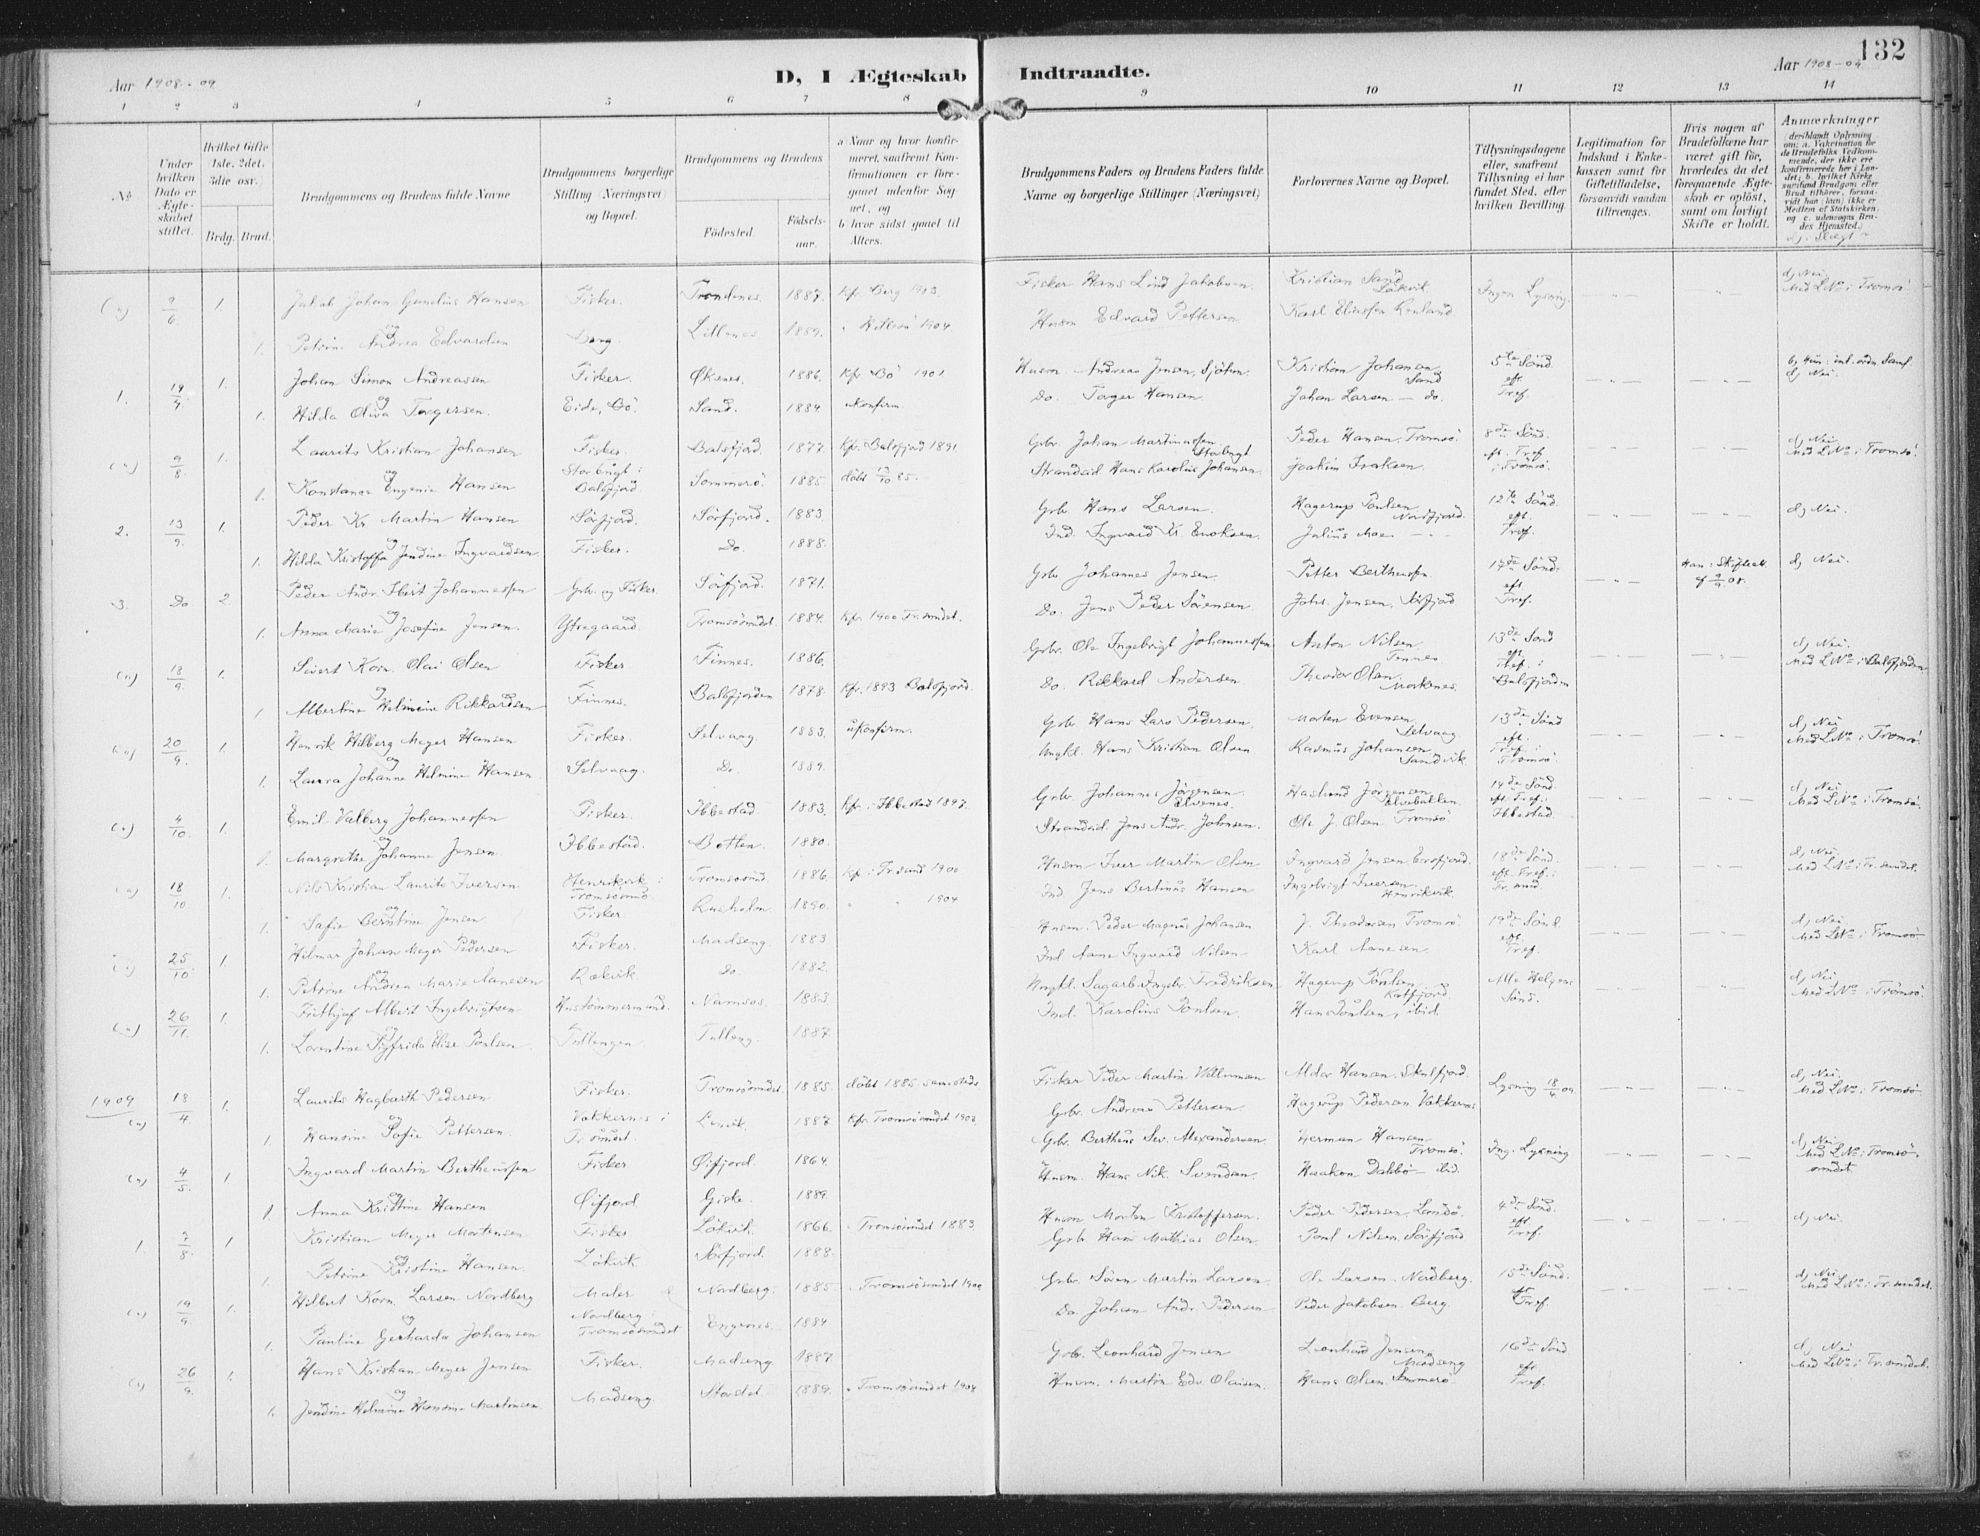 132
Aar 1908-09
D, I Ægteskab Indtraadte.
Aar 1908-09
1 2 3 4 5 6 7 8 9 10 11 12 13 14
No
Under hvilken Dato er Ægteskabet stiftet.
Hvilket Gifte 1ste. 2det. 3die osv.
Brdg. Brud.
Brudgommens og Brudens fulde Navne
Brudgommens borgerlige Stilling (Næringsvei) og Bopæl.
Brudgommens og Brudens
Fødested.
Fødselsaar.
a Naar og hvor konfirmeret, saafremt Konfirmationen er foregaaet udenfor Sognet, og
b hvor sidst gaaet til Alters.
Brudgommens Faders og Brudens Faders fulde Navne og borgerlige Stillinger (Næringsvei)
Forlovernes Navne og Bopæl.
Tillysningsdagene eller, saafremt Tillysning ei har fundet Sted, efter hvilken Bevilling.
Legitimation for Indskud i Enkekassen samt for Giftetilladelse, forsaavidt saadan tiltrænges.
Hvis nogen af Brudefolkene har været gift før, hvorledes da det foregaaende Ægteskab er opløst, samt om lovligt Skifte er holdt.
Anmærkninger
(deriblandt Oplysning om: a. Vakcination for de Brudefolks Vedkommende, der ikke ere konfirmerede her i Landet; b. hvilket Kirkesamfund Brudgom eller Brud tilhører, forsaavidt han (hun) ikke er Medlem af Statskirken, og c. udensogns Brudes Hjemsted.)
d, Slægt
9/6 1. Jakob Johan Gunelius Hansen Fisker. Trondenes 1887. Kfr. Berg 1903. Fisker Hans Lind Jakobsen Kristian Sand Løkvik Ingen Lysning d, Nei Med L.No i Tromsø
og
1. Petrine Andrea Edvardsen Berg. Lillenes 1889. " Hillesø 1904. Husm Edvard Pettersen Karl Eliassen
1. 19/7 1. Johan Simon Andreassen Fisker. Øksnes. 1886. Kfr. Bø 1901 Husm. Andreas Jensen, Kristian Johansen Sand 5te Sønd. eft Tref. d, Nei.
og
1. Hilda Oliva Torgersen. Eide, Bø. Sand. 1884. Konfirm. Do. Torger Hansen Johan Larsen - do.
9/8 1. Laurits Kristian Johansen Fisker. Balsfjord. 1877. Kfr. Balsfjord 1891 Gbr. Johan Martinussen Storbugt Peder Hansen, Tromsø. 8de Sønd. eft. Tref. i Tromsø. d, Nei Med L.No i Tromsø.
og
1. Konstance Eugenie Hansen Storbugt i Balsfjord Sommerø. 1885 døbt 12/10 85. Strandsid. Hans Karolius Johansen Joakim Iraksen.
2. 13/9. 1. Peder Kr. Martin Hansen Sørfjord. Sørfjord. 1883. Gbr. Hans Larsen. Hagerup Paulsen Nordfjord. 12te Sønd. eft. Tref. d, Nei.
og
1. Hilda Kristoffa Jendine Ingvardsen Fisker. Do. 1888. Ind. Ingvard Kr. Enoksen. Julius Moe
3. Do 2. Peder Andr. Johannessen Gbr. og Fisker. Sørfjord. 1871. Gbr Johannes Jensen. Petter Bertheussen 17de Sønd. eft Tref. Han: af 9/9 08. d, Nei.
og
1. Anna Marie Josefine Jensen. Yttregaard. Tromsøsundet. 1884. Kfr. 1900 Tr.sundet. Do. Jens Peder Sørensen Johs. Jensen, Sørfjord
18/9. 1. Sivert Korn. Olai Olsen Fisker Finnes. 1886. Gbr. Ole Ingebrigt Johannessen. Anton Nilsen Finnes 13de Sønd eft. Tref. i Balsfjorden d, Nei. Med L.No i Balsfjorden
og
1. Albertine Helmine Rikkardsen Finnes. Balsfjorden 1878. Kfr. 1893 Balsfjord. Do. Rikkard Andersen Theodor Olsen, Mortenes.
20/9. 1. Henrik Hilberg Meyer Hansen Fisker. Selvaag. 1883. ukonfirm. Gbr. Hans Lars Pedersen. Morten Evensen Selvaag 13de Sønd eft. Tref. i Tromsø. d, Nei Med L.No i Tromsø.
og
1. Laura Johanne Helmine Hansen Selvaag. Do. 1889. Ungkl. Hans Kristian Olsen Rasmus Johansen Sandvik.
4/10. 1. Emil Valberg Johannessen Fisker. Ibbestad. 1883. Kfr. i Ibbestad 1897. Gbr. Johannes Jørgensen Elvenes. Haslund Jørgensen Elvebakken. 14de Sønd. eft. Tref. i Ibbestad. d, Nei. Med L.No i Tromsø.
og
1. Margrethe Johanne Jensen Ibbestad. Botten. 1880. Strandsid. Jens Andr. Johnsen. Ole J. Olsen Tromsø
18/10 1. Nils Kristian Laurits Iversen Henrikvik i Tromsøsund Fisker Tromsøsund 1886. Kfr. i Tr.sund 1900 Husm Iver Martin Olsen Ingvard Jensen Ersfjord. 18de Sønd. eft. Tref. i Tr.sund. d, Nei. Med L.No i Tr.sundet.
og
1. Sofie Berntine Jensen 1890. " " 1904 Ind Jens Bertinus Hansen Ingebrigt Iversen Henrikvik
25/10. 1. Hilmar Johan Meyer Pedersen Fisker. Madseng. 1883 Husm. Peder Magnus Johansen J. Theodorsen Tromsø. 19de Sønd. eft. Tref. d, Nei Med L.No i Tromsø
og
1. Petrine Andrea Marie Aanesen Rækvik. Do. 1882. Ind Aane Ingvard Nilsen Karl Aanesen
26/11. 1. Frithjof Albert Ingebrigtsen Hustømmermand. Namsos. 1883. Ungkl. Ingebr. Fredriksen Hagerup Paulsen Katfjord. Alle Helgens Sønd. d, Nei Med L.No i Tromsø.
og
1. Lorentine Sigfrida Elise Paulsen. Tullengen Tulleng. 1887 Ind. Karolius Paulsen Hans Paulsen, ibid.
1909 18/4 1. Laurits Hagbarth Pedersen Fisker. Tromsøsundet. 1885. døbt 1885 samesteds Fisker Peder Martin Villumsen Aldor Hansen. Skulsfjord. Lysning 18/4 09. d, Nei. Med L.No i Tromsø.
og
1. Hansine Sofie Pettersen. Vakkernes i Tr.sundet. Lenvik. 1887 Kfr. Tromsøsundet 1902 Gbr. Andreas Pettersen. Hagerup Pedersen Vakkernes
4/5. 1 Ingvard Martin Bertheussen Fisker Øifjord. 1864. Gbr. Bertheus Sev. Alexandersen Herman Hansen Tromsø. Ing. Lysning d, Nei. Med L.No i Tromsøsundet
og
1. Anna Kristine Hansen Øifjord. Giske. 1889. Husm. Hans Nik. Svendsen. Haakon Dalbø - ibid.
1. 9/8. 1 Kristian Meyer Mortensen Fisker Løkvik. 1866. " Tromsøsundet 1883. Husm Morten Kristoffersen Peder Pedersen, 4de Sønd. eft Tref. d, Nei.
og
1. Petrine Kristine Hansen. Løkvik Sørfjord. 1888. Gbr. Hans Mathias Olsen Paul Nilsen, Sørfjord
19/9. 1. Hilbert Korn. Larsen Nordberg Maler Nordberg. 1885 " Tromsøsundet 1900 Gbr. Søren Martin Larsen. Ole Larsen Nordberg. 15de Sønd. eft Tref. d, Nei. Med L.No i Tr.sundet.
og
1. Pauline Gerharda Johansen Nordberg i Tromsøsundet Engenes. 1884 Do. Johan Andr. Pedersen Peder Jakobsen Berg.
26/9. 1. Hans Kristian Meyer Jensen Fisker. Madseng 1887. Gbr. Leonhard Jensen Leonhard Jensen Madseng 16de Sønd eft Tref. d, Nei Med L.No i Tr.sundet.
og
1. Jendine Helmine Hansine Martinsen. Madseng. Storstet. 1889. " Tromsøsundet 1904 Husm. Martin Edv. Olaisen. Hans Olsen. Sommerø